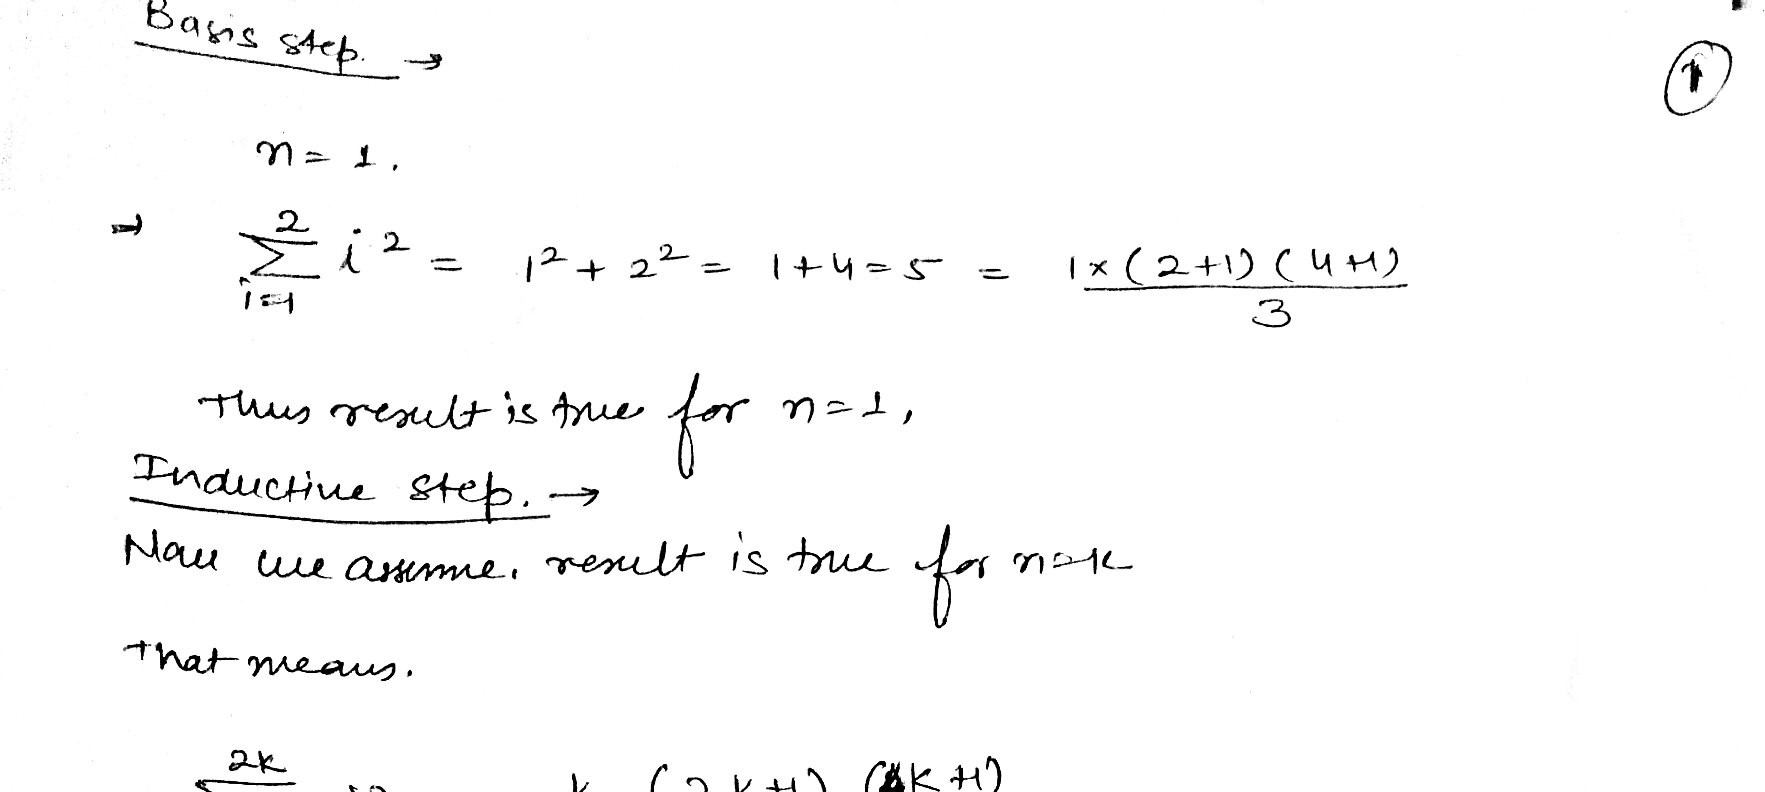 Basis step. →
1
n = 1.
→ ∑_{i=1}^{2} i² = 1² + 2² = 1 + 4 = 5 = (1 × (2+1) (4+1)) / 3
Thus result is true for n = 1,
Inductive step. →
Now we assume. result is true for n = k
that means.
2k
k (2k+1) (4k+1)